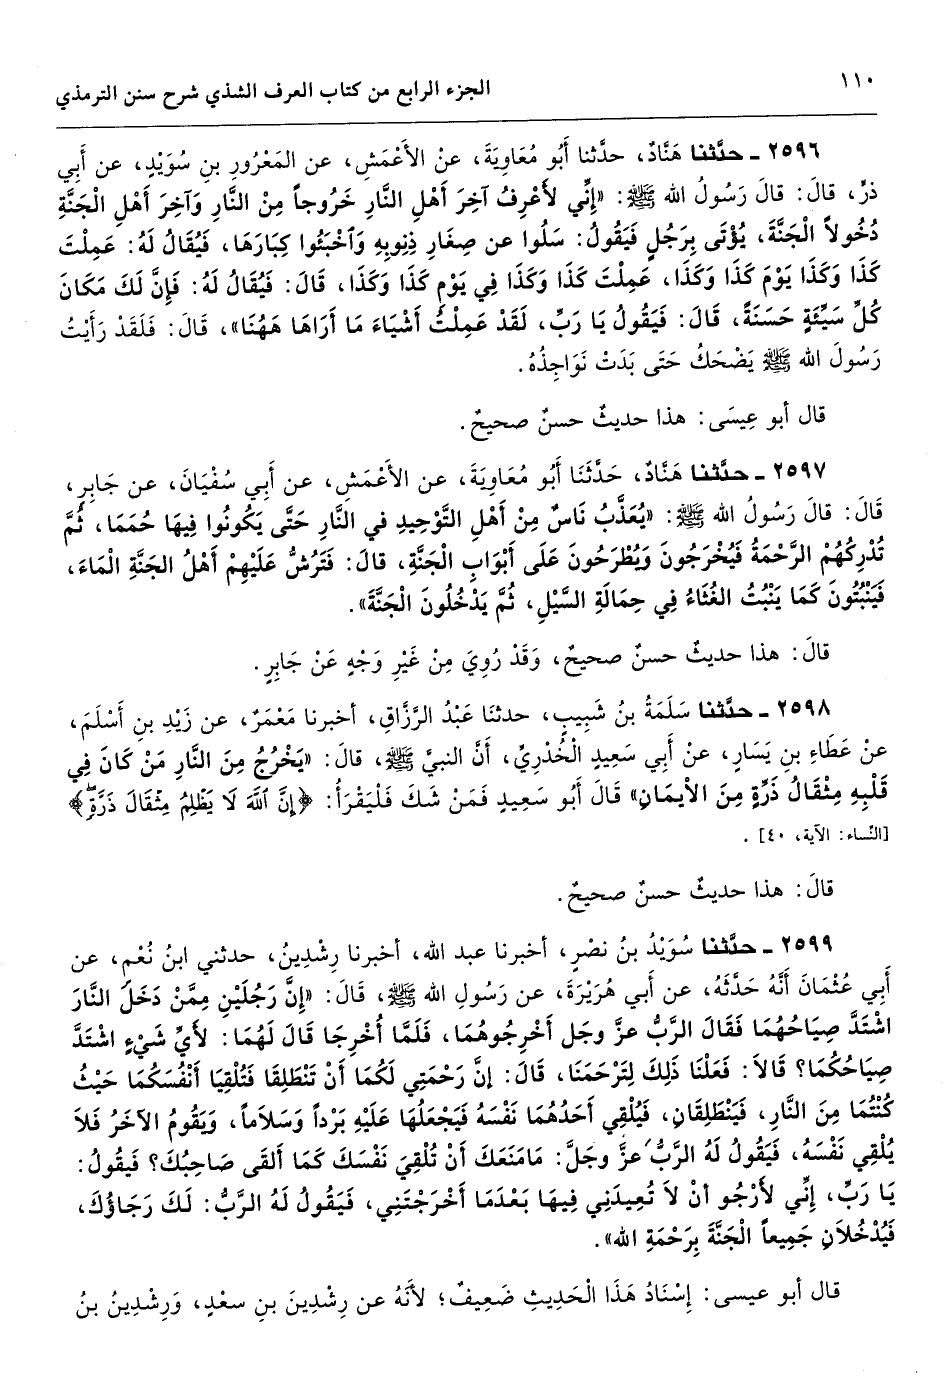 ١١٠
الجزء الرابع من كتاب العرف الشذي شرح سنن الترمذي
٢٥٩٦ ـ حدَّثنا هَنَّادٌ، حدَّثنا أَبُو مُعَاوِيَةَ، عنْ الأَعْمَشِ، عن المَعْرُورِ بنِ سُوَيْدٍ، عن أَبِي
ذرٍّ، قالَ: قالَ رَسُولُ الله ﷺ: «إِنِّي لأَعْرِفُ آخِرَ أَهْلِ النَّارِ خَرُوجاً مِنْ النَّارِ وَآخِرَ أَهْلِ الْجَنَّةِ
دُخُولاً الْجَنَّةَ، يُؤْتَى بِرَجُلٍ فَيَقُولُ: سَلُوا عن صِغَارِ ذِنِوبِهِ وَاخْبَئُوا كِبَارَهَا، فَيُقَالُ لَهُ: عَمِلْتَ
كَذَا وَكَذَا يَوْمَ كَذَا وَكَذَا، عَمِلْتَ كَذَا وَكَذَا فِي يَوْمِ كَذَا وَكَذَا، قَالَ: فَيُقَالُ لَهُ: فَإِنَّ لَكَ مَكَانَ
كُلِّ سَيِّئَةٍ حَسَنَةً، قَالَ: فَيَقُولُ يَا رَبِّ، لَقَدْ عَمِلْتُ أَشْيَاءَ مَا أَرَاهَا هَهُنَا»، قَالَ: فَلَقَدْ رَأَيْتُ
رَسُولَ الله ﷺ يَضْحَكُ حَتَى بَدَتْ نَوَاجِذُهُ.
قال أبو عِيسَى: هذا حديثٌ حسنٌ صحيحٌ.
٢٥٩٧ ـ حدَّثنا هَنَّادٌ، حَدَّثَنَا أَبُو مُعَاوِيَةَ، عن الأَعْمَشِ، عن أَبِي سُفْيَانَ، عن جَابِرِ،
قَالَ: قالَ رَسُولُ الله ﷺ: «يُعَذَّبُ نَاسٌ مِنْ أَهْلِ التَّوْحِيدِ في النَّارِ حَتَّى يَكُونُوا فِيهَا حُمَمَا، ثُمَّ
تُدْرِكُهُمْ الرَّحْمَةُ فَيُخْرَجُونَ وَيُطْرَحُونَ عَلَى أَبْوَابِ الْجَنَّةِ، قالَ: فَتَرُشُّ عَلَيْهِمْ أَهْلُ الجَنَّةِ المَاءَ،
فَيَنْبُتُونَ كَمَا يَنْبُتُ الغُثَاءُ فِي حِمَالَةِ السَّيْلِ، ثُمَّ يَدْخُلُونَ الْجَنَّةَ».
قالَ: هذا حديثٌ حسنٌ صحيحٌ، وَقَدْ رُوِيَ مِنْ غَيْرِ وَجْهٍ عَنْ جَابِرٍ.
٢٥٩٨ ـ حدَّثنا سَلَمَةُ بنُ شَبِيبٍ، حدثنا عَبْدُ الرَّزَّاقِ، أخبرنا مَعْمَرٌ، عن زَيْدِ بنِ أَسْلَمَ،
عنْ عَطَاءِ بنِ يَسَارِ، عنْ أَبي سَعِيدِ الْخُذرِيِّ، أَنَّ النبيَّ ﷺ، قَالَ: «يَخْرُجُ مِنَ النَّارِ مَنْ كَانَ فِي
قَلْبِهِ مِثْقَالُ ذَرَّةٍ مِنَ الأَيمَانِ» قَالَ أَبُو سَعِيدٍ فَمَنْ شَكَ فَلْيَقْرَأُ: ﴿إِنَّ اللَّهَ لَا يَظْلِمُ مِثْقَالَ ذَرَّةٍ﴾
[النِّساء: الآية، ٤٠].
قالَ: هذا حديثٌ حسنٌ صحيحٌ.
٢٥٩٩ ـ حدَّثنا سُوَيْدُ بنُ نصْرٍ، أخبرنا عبد الله، أخبرنا رِشْدِينُ، حدثني ابنُ نُعْم، عن
أَبِي عُثْمَانَ أَنَّهُ حَدَّثَهُ، عن أَبي هُرَيْرَةَ، عن رَسُولِ الله ﷺ، قَالَ: «إِنَّ رَجُلَيْنِ مِمَّنْ دَخَلَ النَّارَ
اشْتَدَّ صِيَاحُهُمَا فَقَالَ الرَّبُّ عزَّ وجل أَخْرِجُوهُمَا، فَلَمَّا أُخْرِجَا قَالَ لَهُمَا: لأَيِّ شَيْءٍ اشْتَدَّ
صِيَاحُكُمَا؟ قَالاَ: فَعَلْنَا ذَلِكَ لِتَرْحَمَنَا، قَالَ: إِنَّ رَحْمَتِي لَكُمَا أَنْ تَنْطَلِقَا فَتُلْقِيَا أَنْفُسَكُمَا حَيْثُ
كُنْتُمَا مِنَ النَّارِ، فَيَنْطَلِقَانِ، فَيُلْقِي أَحَدُهُمَا نَفْسَهُ فَيَجْعَلُهَا عَلَيْهِ بَرْداً وَسَلاَماً، وَيَقُومُ الآخَرُ فَلاَ
يُلْقِي نَفْسَهُ، فَيَقُولُ لَهُ الرَبُّ عزَّ وجَلَّ: مَامَنَعَكَ أَنْ تُلْقِيَ نَفْسَكَ كَمَا أَلقَى صَاحِبُكَ؟ فَيَقُولُ:
يَا رَبِّ، إِنِّي لأَرْجُو أَنْ لاَ تُعِيدَنِي فِيهَا بَعْدَمَا أَخْرَجْتَنِي، فَيَقُولُ لَهُ الرَّبُّ: لَكَ رَجَاؤُكَ،
فَيُدْخُلاَنِ جَمِيعاً الْجَنَّةَ بِرَحْمَةِ الله».
قال أبو عيسى: إِسْنَادُ هَذَا الْحَدِيثِ ضَعِيفٌ؛ لأَنَّهُ عن رِشْدِينَ بنِ سعْدٍ، وَرِشْدِينُ بنُ